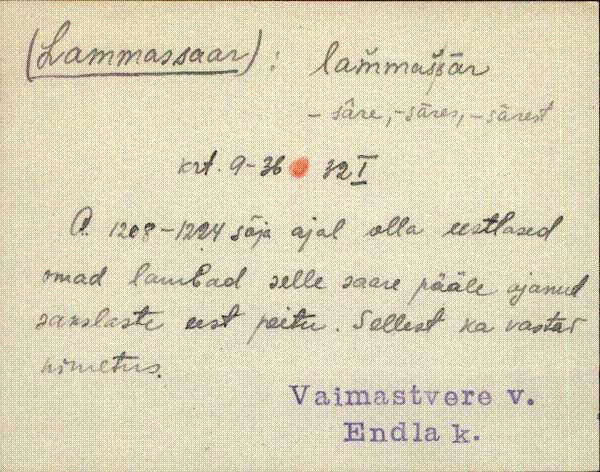 (Lammassaar): lam̆mas̆s̆ār
- sāre, -sāres, -sārest
krt. 9-36 32 I
A. 1208-1224 sõja ajal olla eestlased
omad lambad selle saare pääle ajanud
sakslaste eest peitu. Sellest ka vastav
nimetus.
Vaimastvere v.
Endla k.